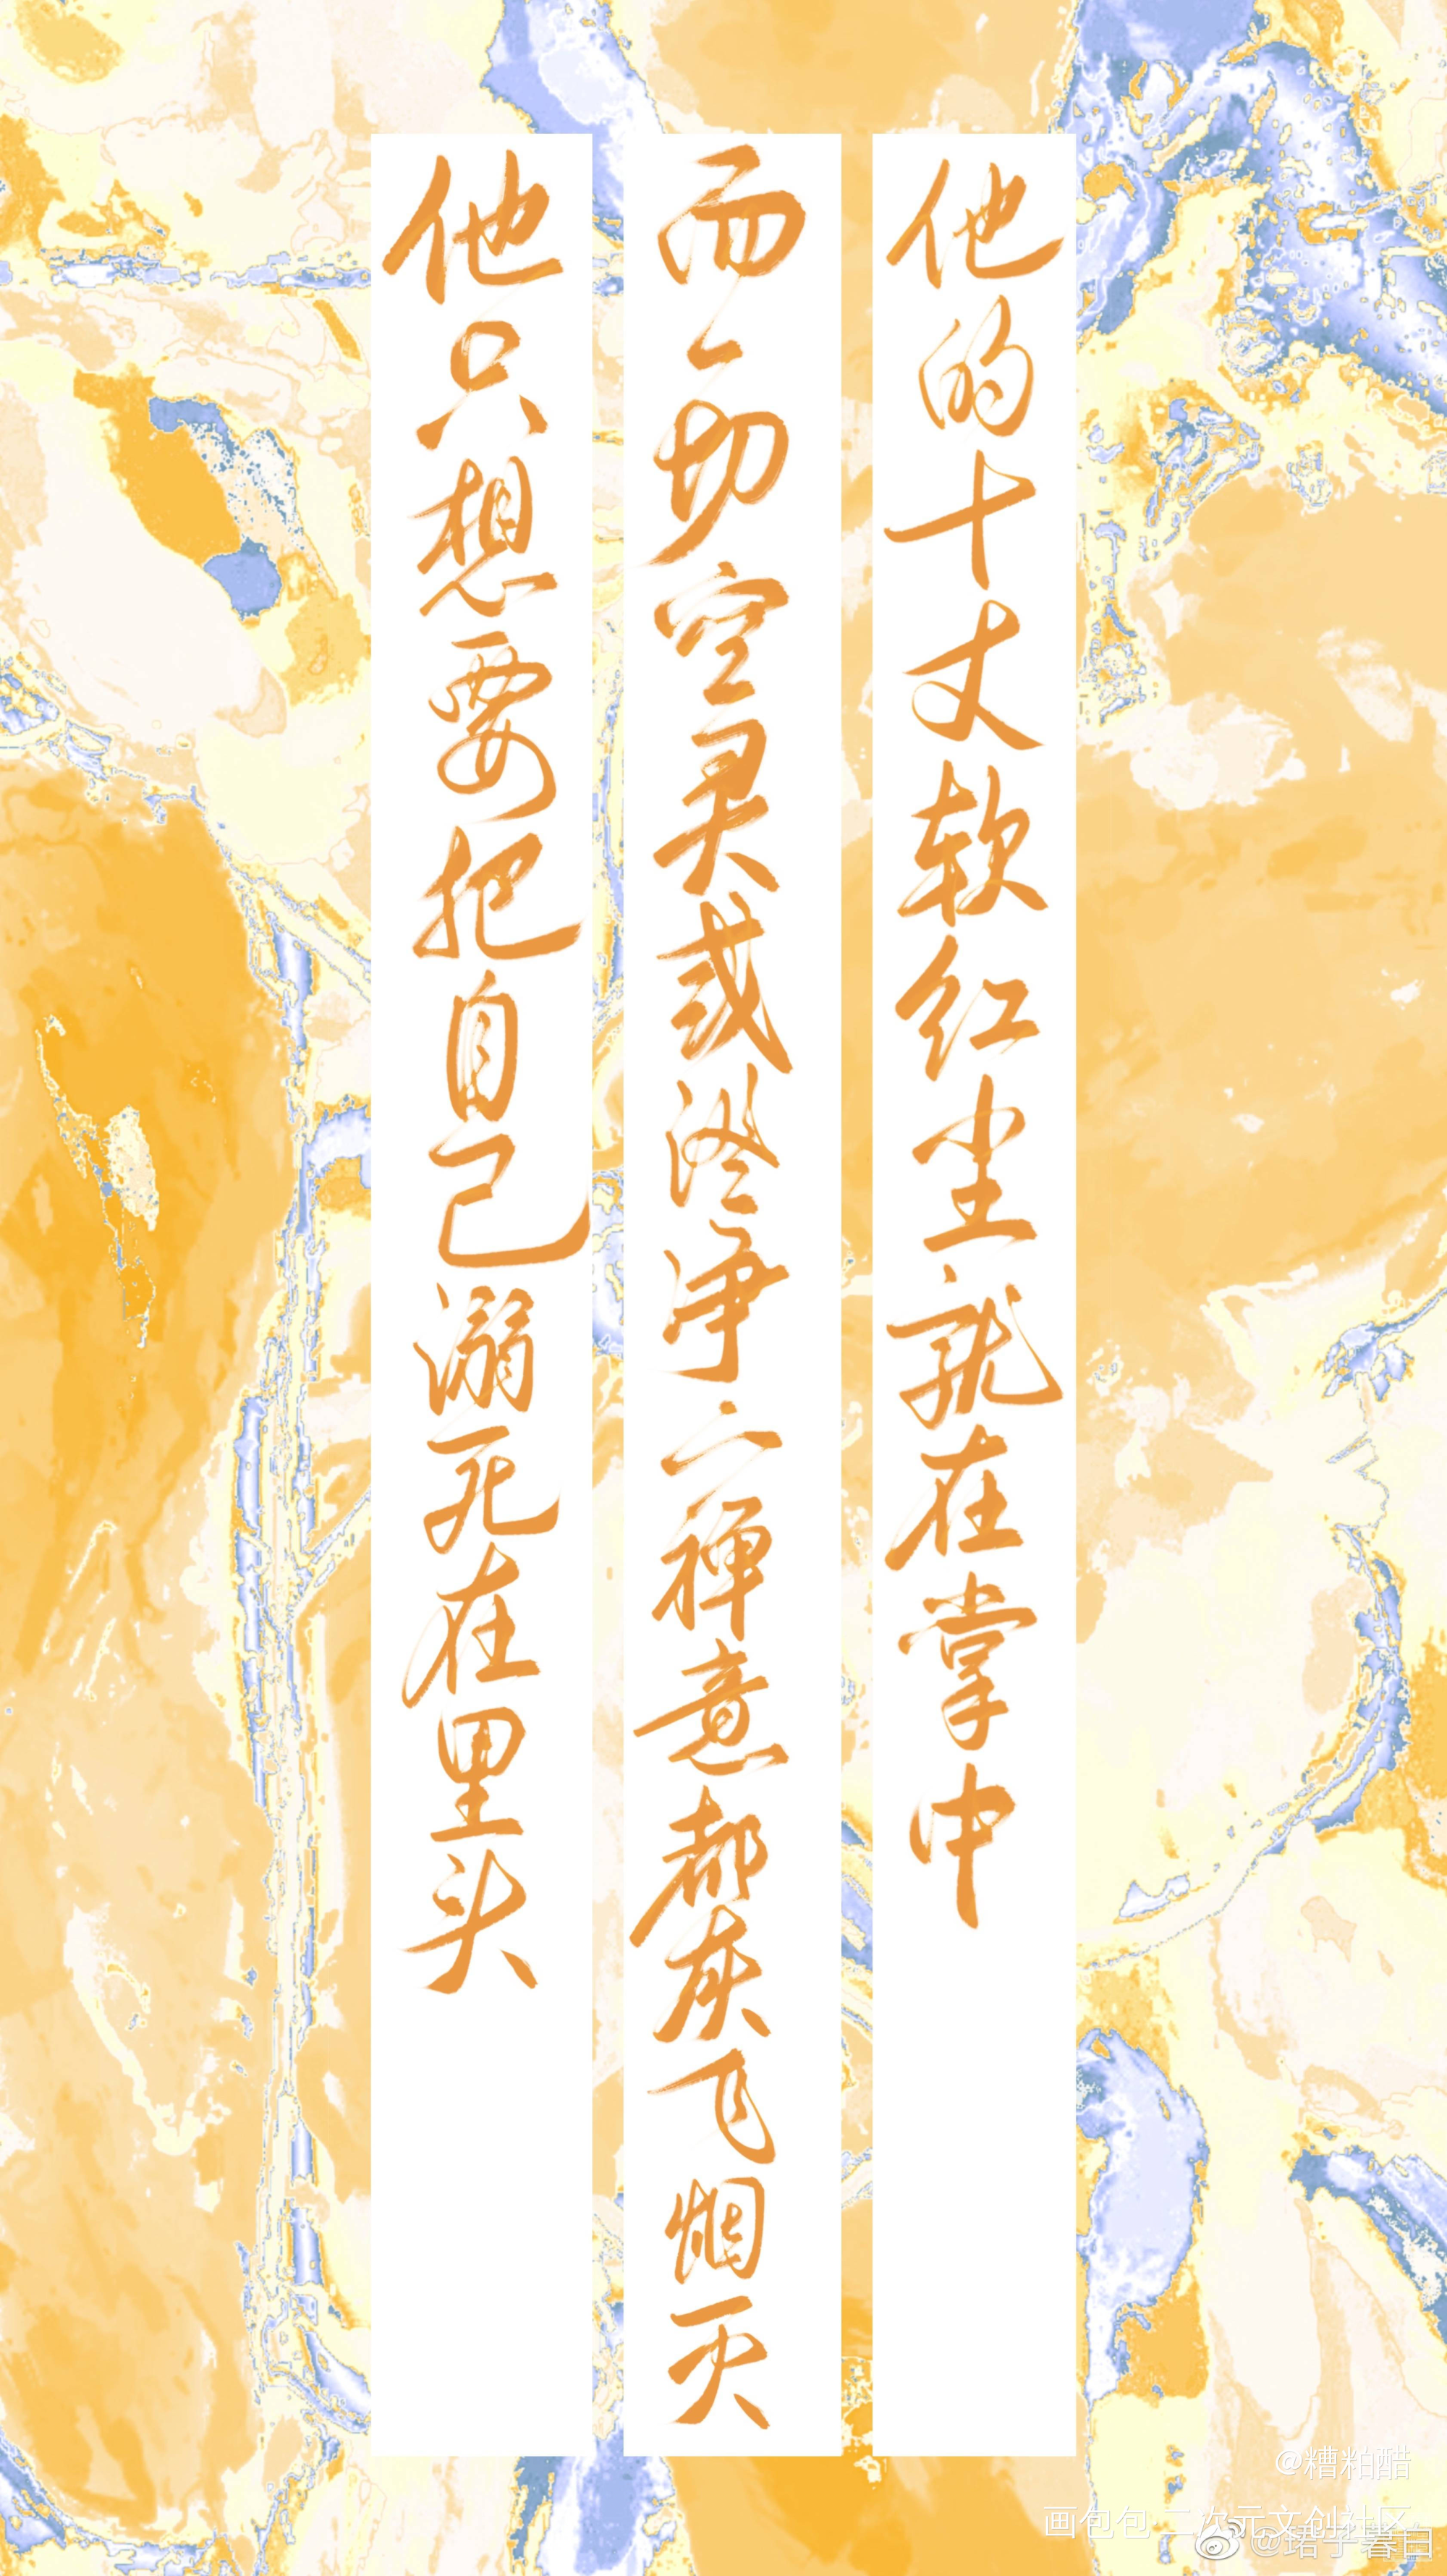 他的十丈软红尘就在掌中
而一切空灵或澄净的禅意都灰飞烟灭
他只想要把自己溺死在里头
@糟粕醋
画包包 二次元文创社区
@珺子暮白